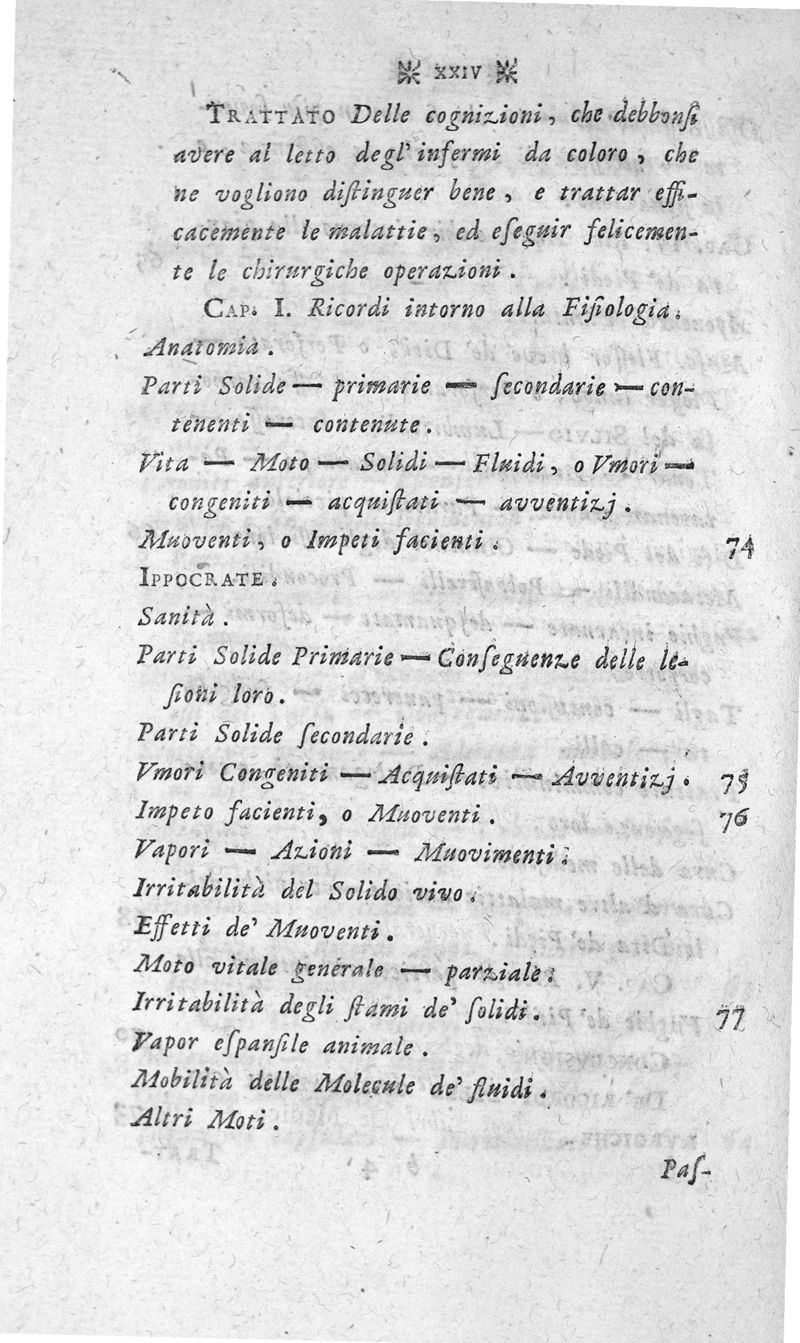 XXIV
TRATTATO Delle cognizioni, che debbonſi
avere al letto degl' infermi da coloro, che
ne vogliono diſtinguer bene, e trattar effi-
cacemente le malattie, ed eſeguir felicemen-
te le chirurgiche operazioni.
CAP. I. Ricordi intorno alla Fiſiologia.
Anatomia.
Parti Solide — primarie — ſecondarie — con-
tenenti — contenute.
Vita — Moto — Solidi — Fluidi, o Vmori —
congeniti — acquiſtati — avventizj.
Muoventi, o Impeti facienti. 74
IPPOCRATE.
Sanità.
Parti Solide Primarie — Conſeguenze delle le-
ſioni loro.
Parti Solide ſecondarie.
Vmori Congeniti — Acquiſtati — Avventizj. 75
Impeto facienti, o Muoventi. 76
Vapori — Azioni — Muovimenti.
Irritabilità del Solido vivo.
Effetti de' Muoventi.
Moto vitale generale — parziale.
Irritabilità degli ſtami de' ſolidi. 77
Vapor eſpanſile animale.
Mobilità delle Molecule de' fluidi.
Altri Moti.
Paſ-